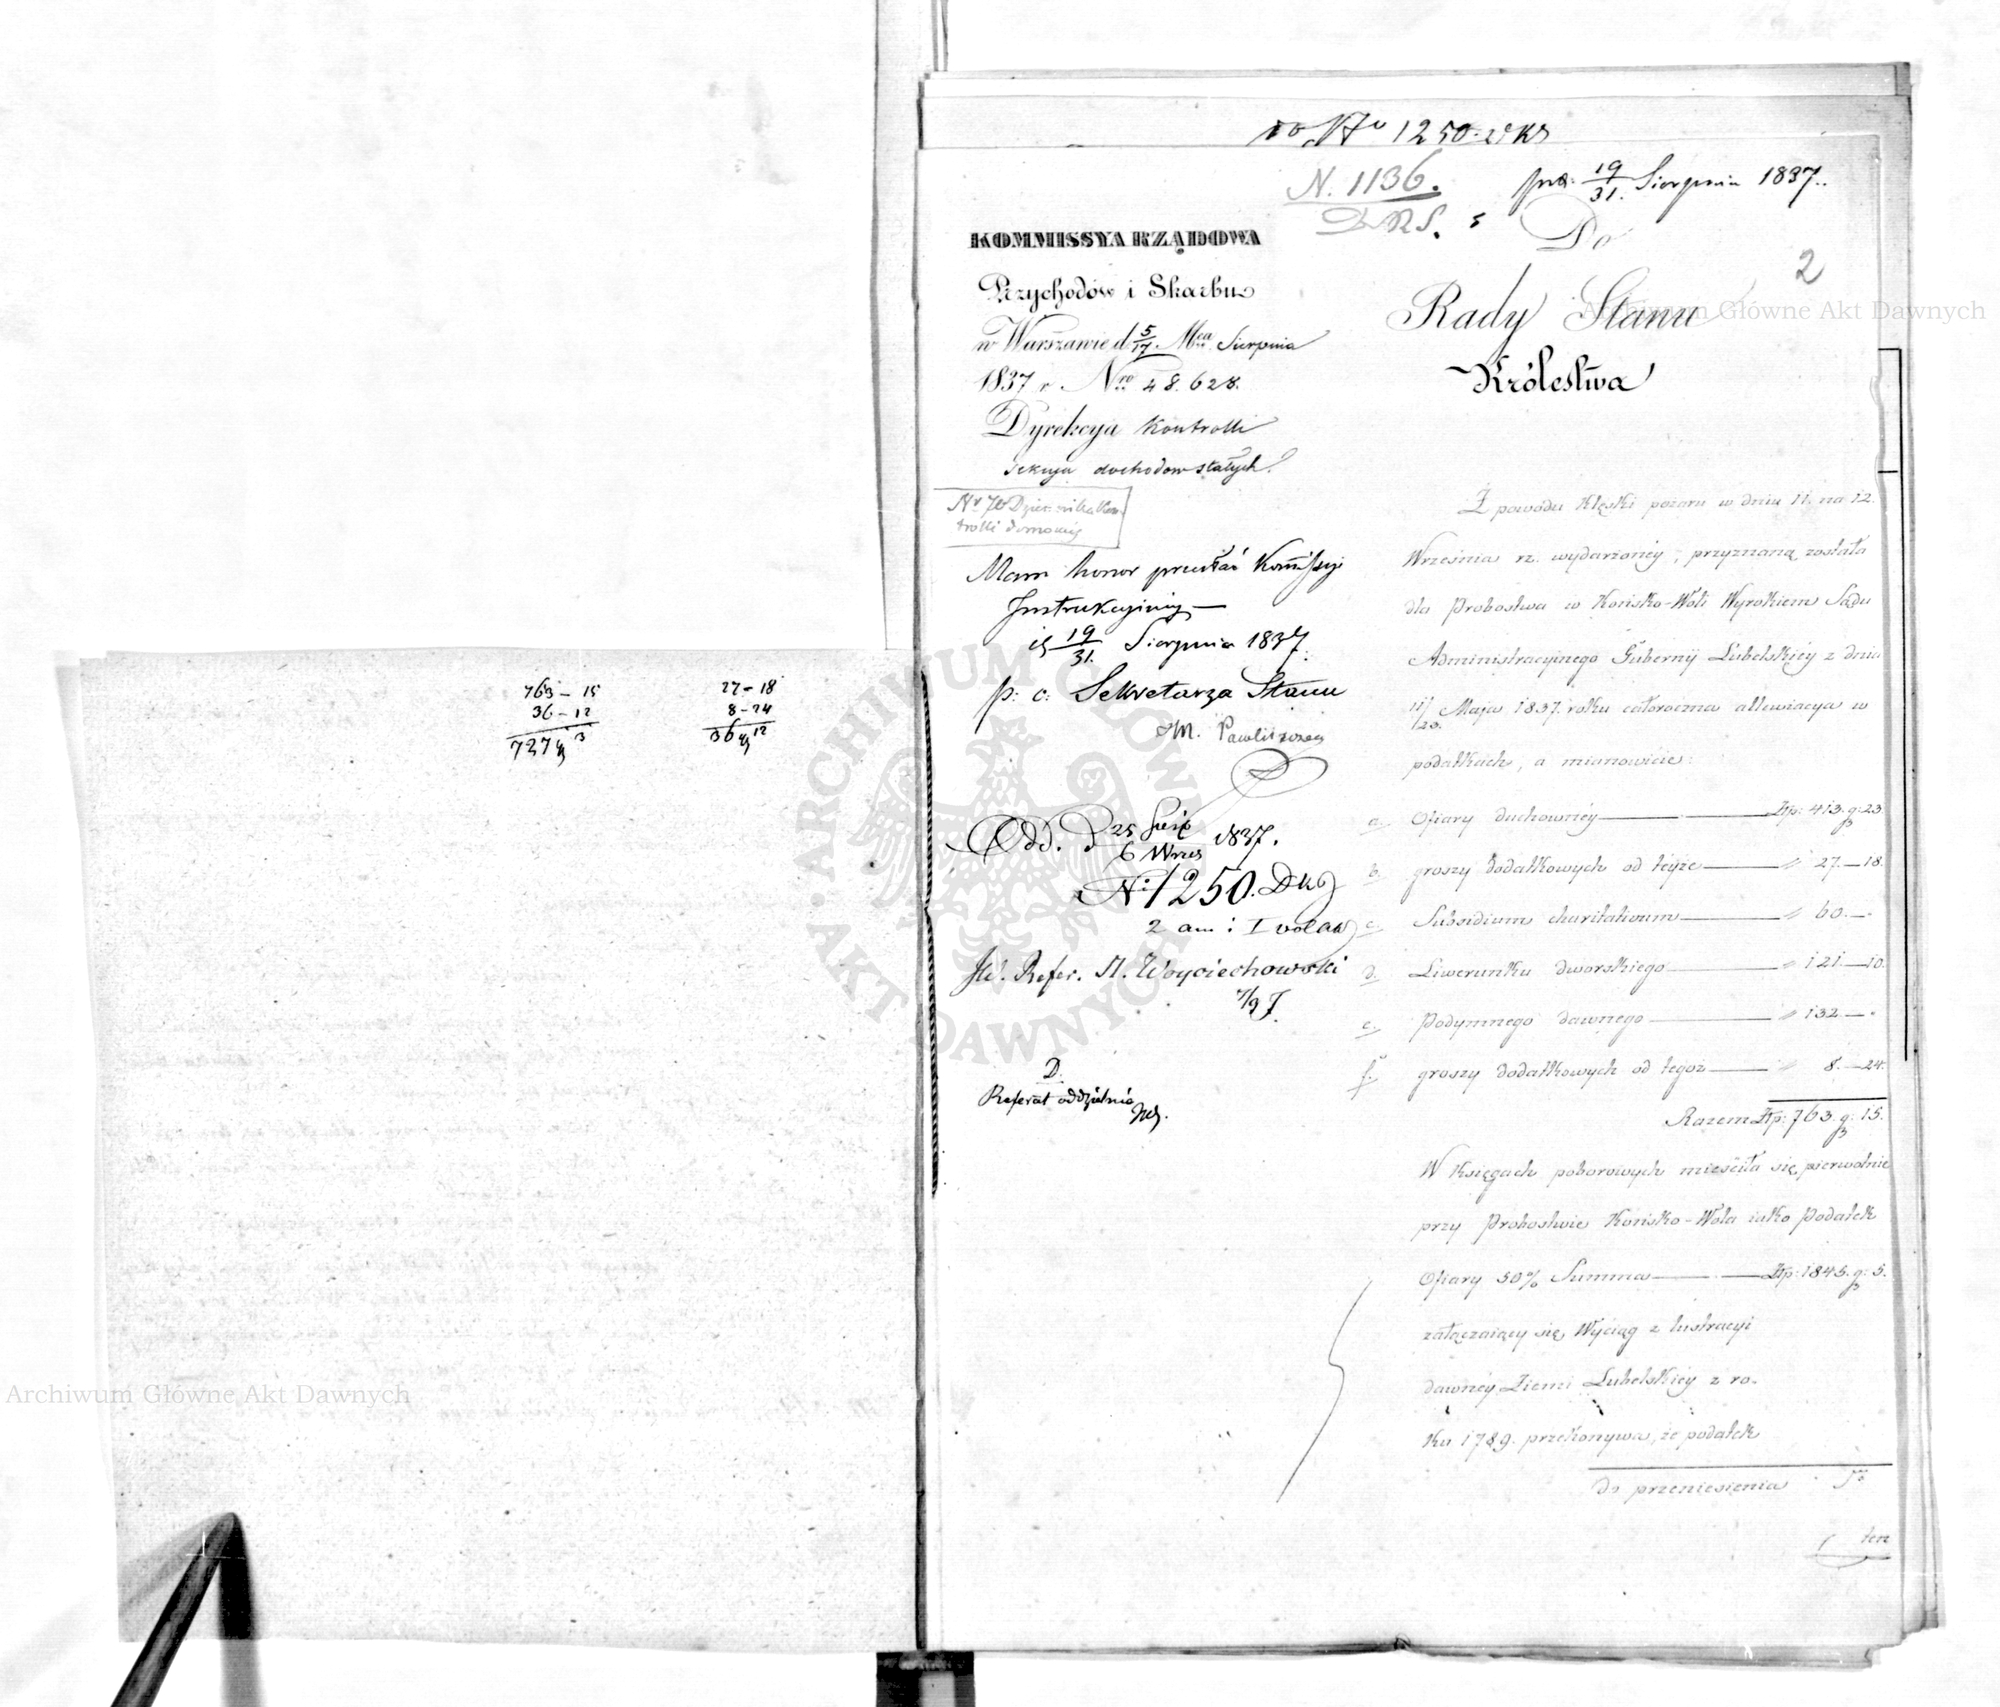 763 – 15
36 – 12
727 3
27 – 18
8 – 24
36 12
do Nro 1250
N. 1136.
prez. 19/31. Sierpnia 1837.
Do
2
Rady Stanu
Królestwa
KOMMISSYA RZĄDOWA
Przychodów i Skarbu
w Warszawie d 5/17. Mca Sierpnia
1837 r Nro 48.628.
Dyrekcya Kontrolli
Sekcya dochodow stałych.
Nr 70 Dziennika Kon-
trolli
Mam honor przesłać Kommissyi
Instrukcyiney —
19/31. Sierpnia 1837.
p: o: Sekretarza Stanu
M. Pawliszczew
Odd. d 25 Sierp/6 Wrzes 1837.
N: 1250.
JW. Refer. St. Woyciechowski
7/9
D.
Referat oddzielnie
Z powodu klęski pożaru w dniu 11. na 12.
Września rz. wydarzoney, przyznaną została
dla Probostwa w Końsko-Woli Wyrokiem Sądu
Administracyinego Gubernij Lubelskiey z dnia
11/23. Maja 1837. roku całoroczna allewiacya w
podatkach, a mianowicie:
a. Ofiary duchowney — Złp: 413. g: 23
b. groszy dodatkowych od teyże — " 27.—18.
c. Subsidium charitativum — " 60.—.
d. Liwerunku dworskiego — " 121.—10.
e. Podymnego dawnego — " 132.—.
f. groszy dodatkowych od tegoż — " 8.—24.
Razem Złp: 763. g: 15.
W Księgach poborowych mieściła się pierwotnie
przy Probostwie Końsko-Wola iako Podatek
Ofiary 50% Summa — Złp: 1845. g: 5.
załączaiący się Wyciąg z lustracyi
dawney Ziemi Lubelskiey z ro-
ku 1789. przekonywa, że podatek
do przeniesienia
ten
Archiwum Główne Akt Dawnych
Archiwum Główne Akt Dawnych
ARCHIWUM GŁÓWNE AKT DAWNYCH